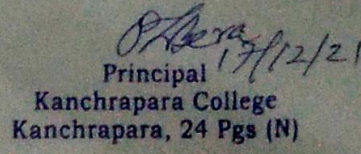 17/12/21
Principal
Kanchrapara College
Kanchrapara, 24 Pgs (N)